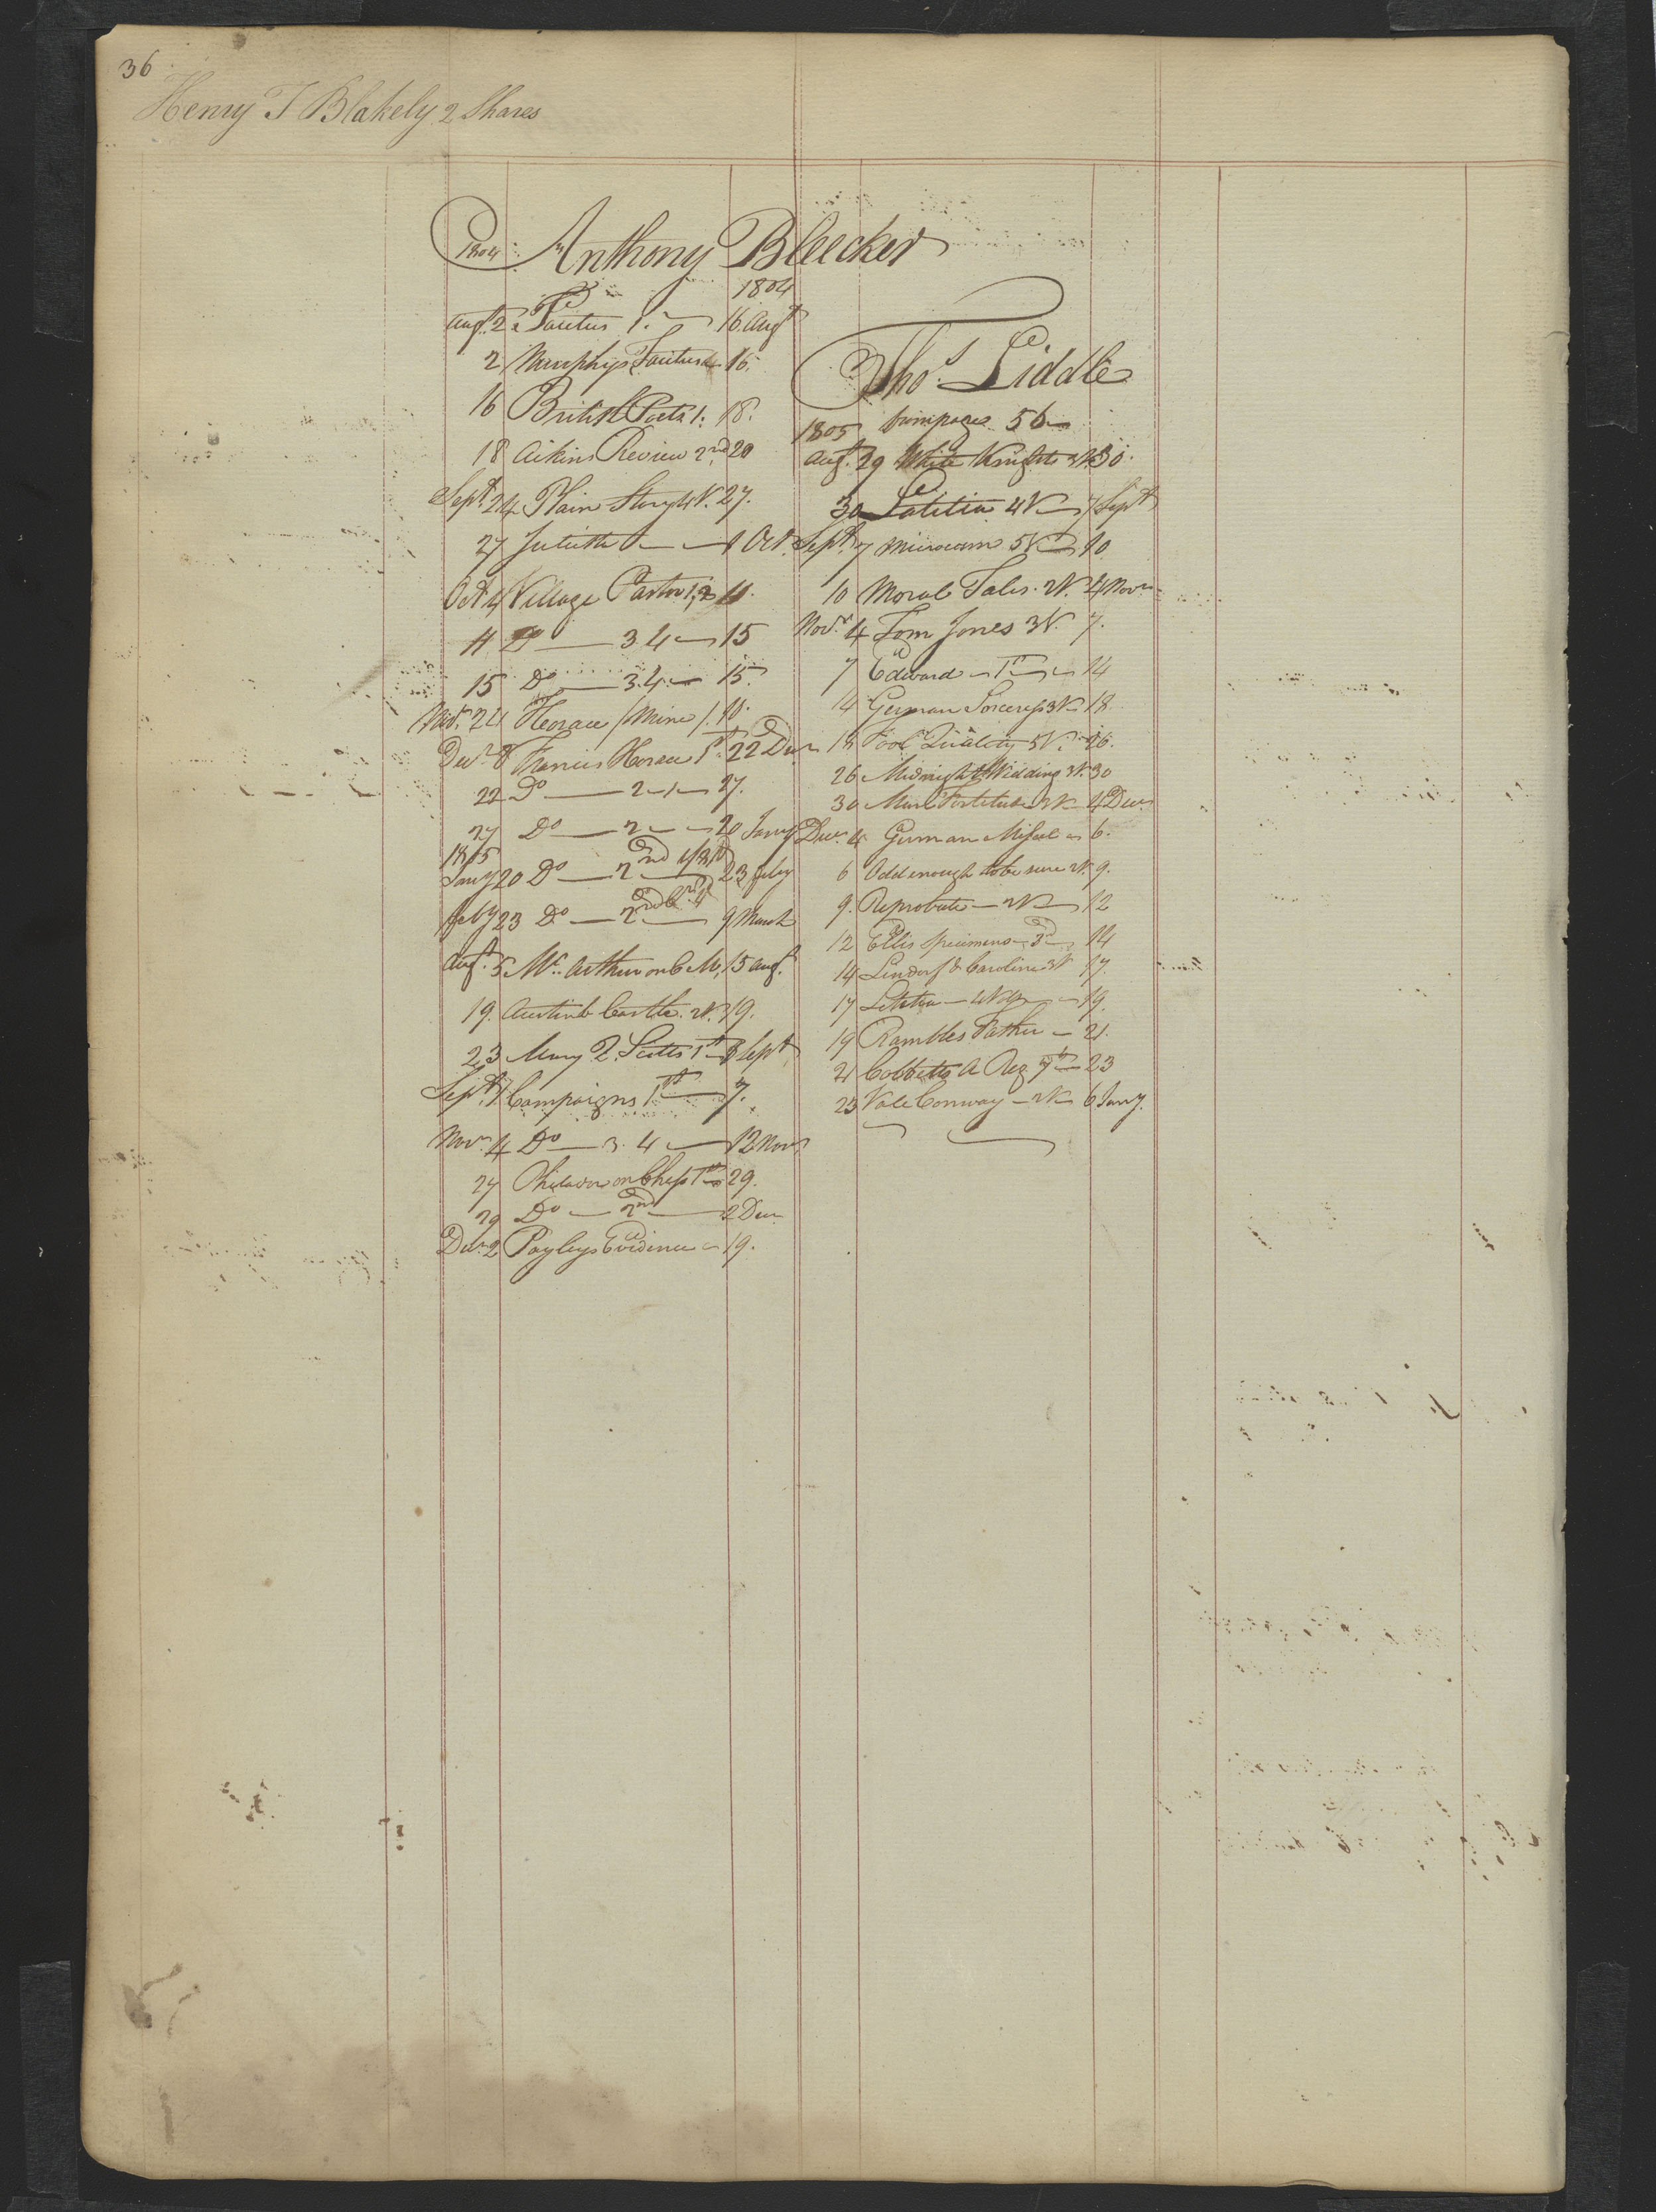 36
Henry T Blakely 2 Shares
1804 Anthony Bleecker
1804
Augt. 2 Tacitus 1. 16 Augt
2 Murphys Tacitus 16.
16 British Poets 1. 18.
18 Aikins Review 2nd 20
Sept. 24 Plain Story 4V. 27.
27 1 Oct.
Oct 4 Village Pastor 1, 2 11.
11 Do 3.4 15
15 Do 3.4 15.
Nov. 24 Horace /Mine/. 11.
Decr. 8 Francis Horace 1st. 22 Decr
22 Do 2 27.
27 Do 2 20 Jany
1805
Jany 20 Do 2nd 23 feby
feby 23 Do 2nd 9 March
Augt. 5 Mc. Arthur on C M, 15 Augt.
19. Austinb Castle. 2V. 19.
23 Mary Q. Scotts 1st 3 Sept
Sept. 7 Campaigns 1st 7.
Novr. 4 Do 3. 4 12 Novr
27 Philidor on Chess 1st 29.
29 Do 2nd 2 Decr
Decr. 2 Payleys Evidence 19.
Thos. Liddle
1805 from page 56
Augt. 29 White Knights 3V 30.
30 Letitia 4V 7 Sept
Sept. 7 Microcosm 5V 10
10 Moral Tales. 2V. 4 Novr
Novr. 4 Tom Jones 3V. 7.
7 Edward 1st 14
14 German Sorceress 3V 18
18 Fool Quality 5V. 26.
26 Midnight Wedding 2V. 30
30 Fortitude 2V 4 Decr
Decr. 4 German Misel 6.
6 Odd enough to be sure 2V. 9.
9. Reprobate 2V 12
12 Ellis Specimens 3d 14
14 Lindorf & Caroline 3V 17.
17 Letitia 19.
19 Rambles Father 21.
21 Cobbetts A Reg 7th 23
23 Vale Conway 2V 6 Jany.